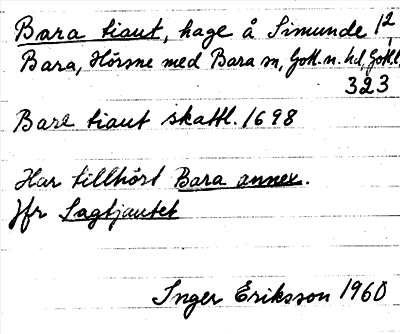 Bara tiaut, hage å Simunde 1²,
Bara, Hörsne med Bara sn, Gotl. n. hd, Gotl.
323
Bare tiaut skattl. 1698
Har tillhört Bara annex.
Jfr Lagtjautet
Inger Eriksson 1960